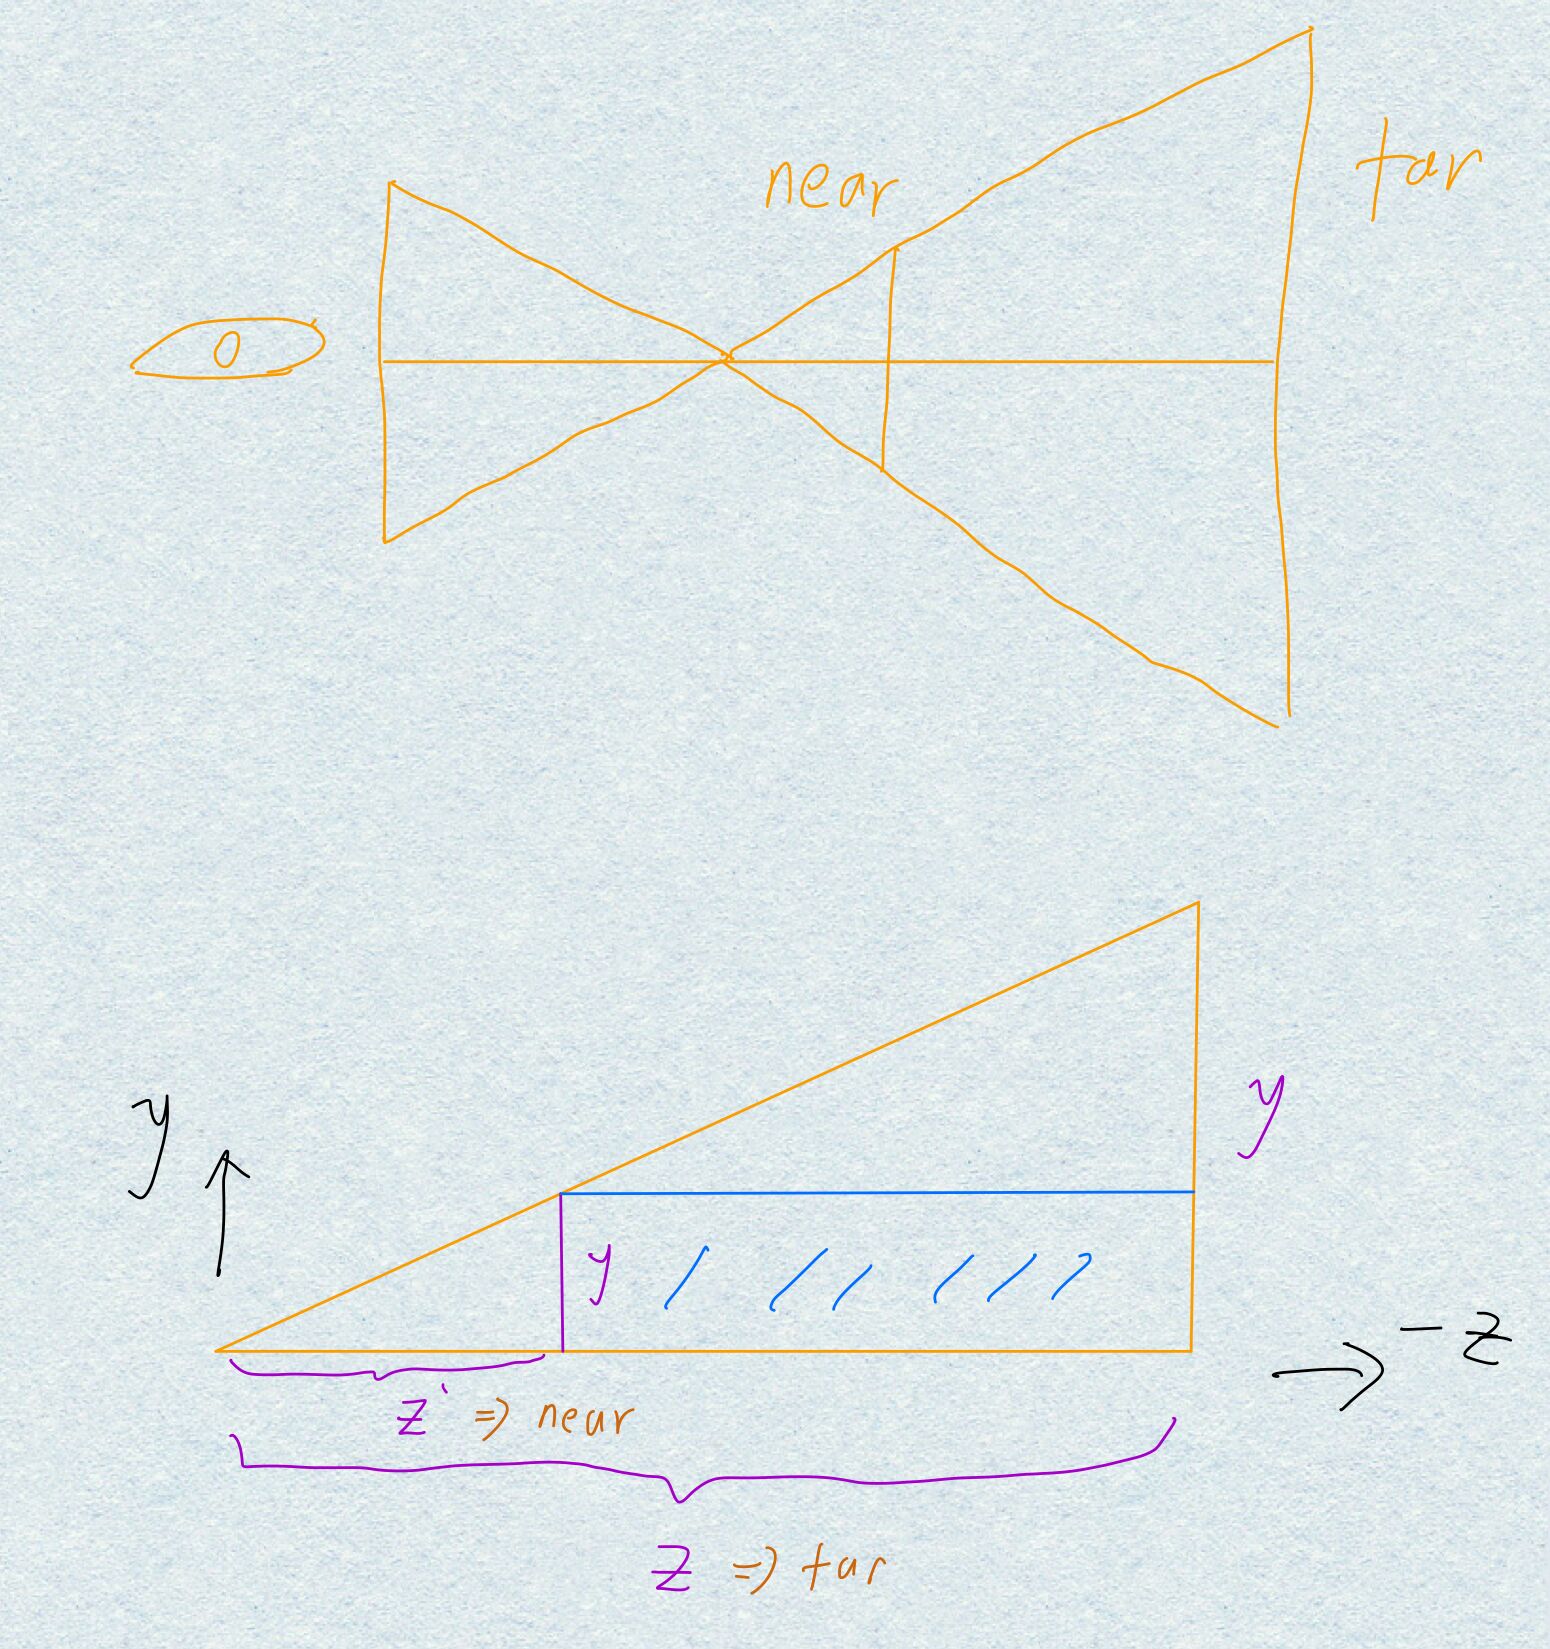 near
far
y
y
y
- z
z' => near
z => far